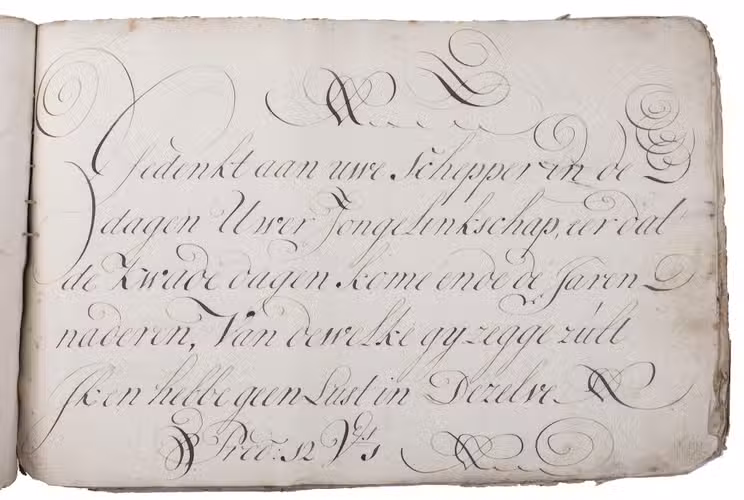 Gedenkt aan uwe Schepper in de
dagen Uwer Jongelinkschap, eer dat
de kwade dagen kome ende de Jaren
naderen, Van dewelke gy zegge zúlt
Ik en hebbe geen Lust in Dezelve
Pred: 12 Vs 1